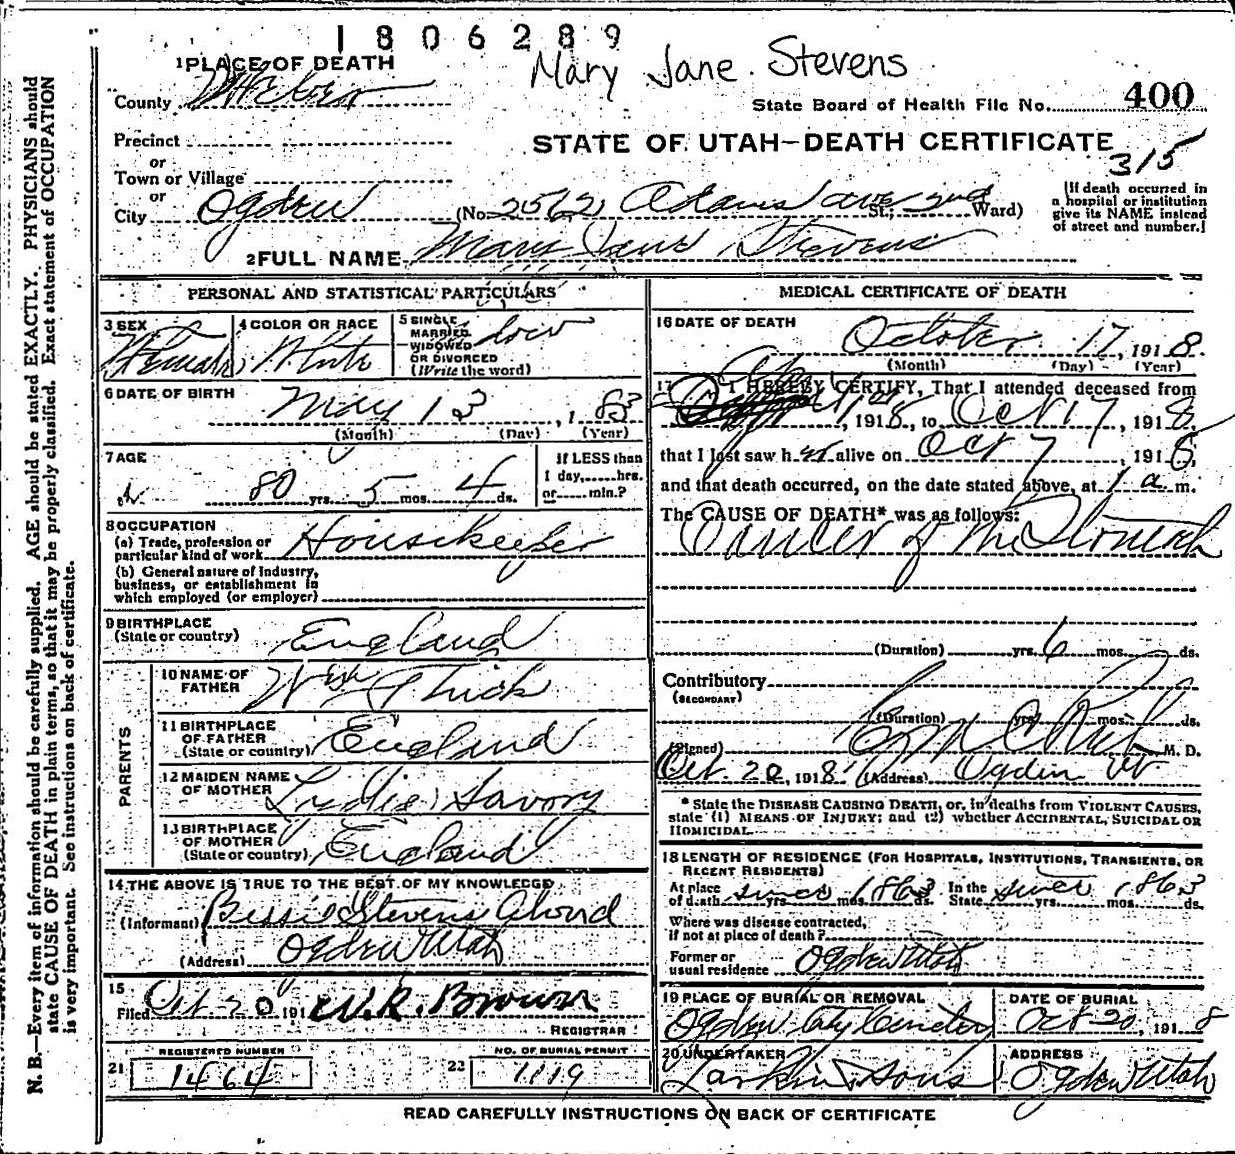 1806289
Mary Jane Stevens
1 PLACE OF DEATH
County Weber
State Board of Health File No. 400
Precinct
or
Town or Village
or
STATE OF UTAH—DEATH CERTIFICATE
315
City Ogden (No. 2562 Adams ave St.; 2nd Ward)
[If death occurred in a hospital or institution give its NAME instead of street and number.]
2 FULL NAME Mary Jane Stevens
PERSONAL AND STATISTICAL PARTICULARS
3 SEX Female
4 COLOR OR RACE White
5 SINGLE MARRIED WIDOWED OR DIVORCED (Write the word)
6 DATE OF BIRTH May 13, 183
(Month) (Day) (Year)
7 AGE 80 yrs. 5 mos. 4 ds.
If LESS than 1 day,......hrs. or......min.?
8 OCCUPATION
(a) Trade, profession or particular kind of work Housekeeper
(b) General nature of industry, business, or establishment in which employed (or employer)
9 BIRTHPLACE (State or country) England
PARENTS
10 NAME OF FATHER Wm Thick
11 BIRTHPLACE OF FATHER (State or country) England
12 MAIDEN NAME OF MOTHER Lydia Savory
13 BIRTHPLACE OF MOTHER (State or country) England
14 THE ABOVE IS TRUE TO THE BEST OF MY KNOWLEDGE
(Informant) Bessie Stevens Alvord
(Address) Ogden Utah
15 Filed Oct 20 191 W. R. Brown
REGISTRAR
21 REGISTERED NUMBER 1464
22 NO. OF BURIAL PERMIT 1119
MEDICAL CERTIFICATE OF DEATH
16 DATE OF DEATH
October 17, 1918.
(Month) (Day) (Year)
17 I HEREBY CERTIFY, That I attended deceased from
1918, to Oct 17, 1918,
that I last saw her alive on Oct 7, 1918,
and that death occurred, on the date stated above, at 1 a m.
The CAUSE OF DEATH* was as follows:
Cancer of the Stomach
(Duration) yrs. 6 mos. ds.
Contributory
(SECONDARY)
(Duration) yrs. mos. ds.
(Signed) M. D.
Oct. 20, 1918 (Address) Ogden Ut
* State the DISEASE CAUSING DEATH, or, in deaths from VIOLENT CAUSES, state (1) MEANS OF INJURY; and (2) whether ACCIDENTAL, SUICIDAL OR HOMICIDAL.
18 LENGTH OF RESIDENCE (FOR HOSPITALS, INSTITUTIONS, TRANSIENTS, OR RECENT RESIDENTS)
At place of death since 1863 yrs. mos. ds. In the State since 1863 yrs. mos. ds.
Where was disease contracted, if not at place of death?
Former or usual residence Ogden Utah
19 PLACE OF BURIAL OR REMOVAL Ogden City Cemetery
DATE OF BURIAL Oct 20, 1918
20 UNDERTAKER Larkin & Sons
ADDRESS Ogden Utah
READ CAREFULLY INSTRUCTIONS ON BACK OF CERTIFICATE
N. B.—Every item of information should be carefully supplied. AGE should be stated EXACTLY. PHYSICIANS should
state CAUSE OF DEATH in plain terms, so that it may be properly classified. Exact statement of OCCUPATION
is very important. See instructions on back of certificate.